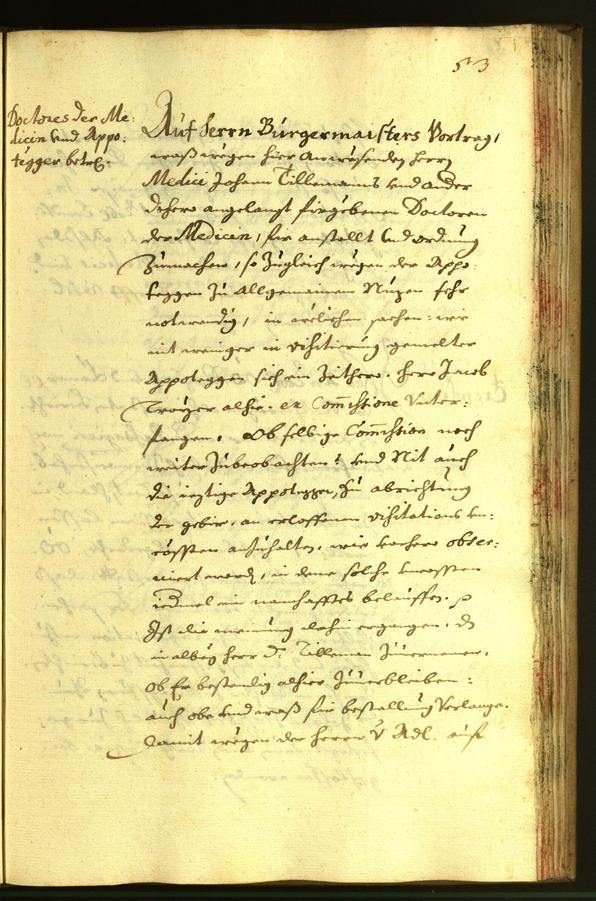 53
Doctores der Me:
dicin und Appo:
tegger betr.
Auf Herrn Bürgermaisters Vortrag,
waß wegen hier Anwösenden Herrn
Medici Johann Tillemanns und ander
dahero angelangt fürgebenen Doctoren
der Medicin, für anstellt und ordnung
Zumachen, so Zugleich wegen der Appo:
teggen Zu Allgemainem Nuzen sehr
notwendig, in etlichen sachen: wie
nit weniger in Visitierung gemelter
Appoteggen sich ein Zeithero. Herr Jacob
Troyer alhie. ex Commissione Unter:
fangen. Ob selbige Commission noch
weiter Zubeobachten? und Nit auch
die ieztige Appotegger, Zu abrichtung
der gebür. an erloffenen Visitations un:
cössten anzuhalten, wie vorhero obser:
viert worden, in deme solche uncossten
iedmal ein namhafftes belauffen.
Ist die meinung dahin ergangen, das
in alweg Herr D: Tilleman Zuvernemen,
Ob Er bestendig alhier Zuverbleiben:
auch obe und waß für bestallung Verlange.
Damit wegen der Herrn V Adl. auf